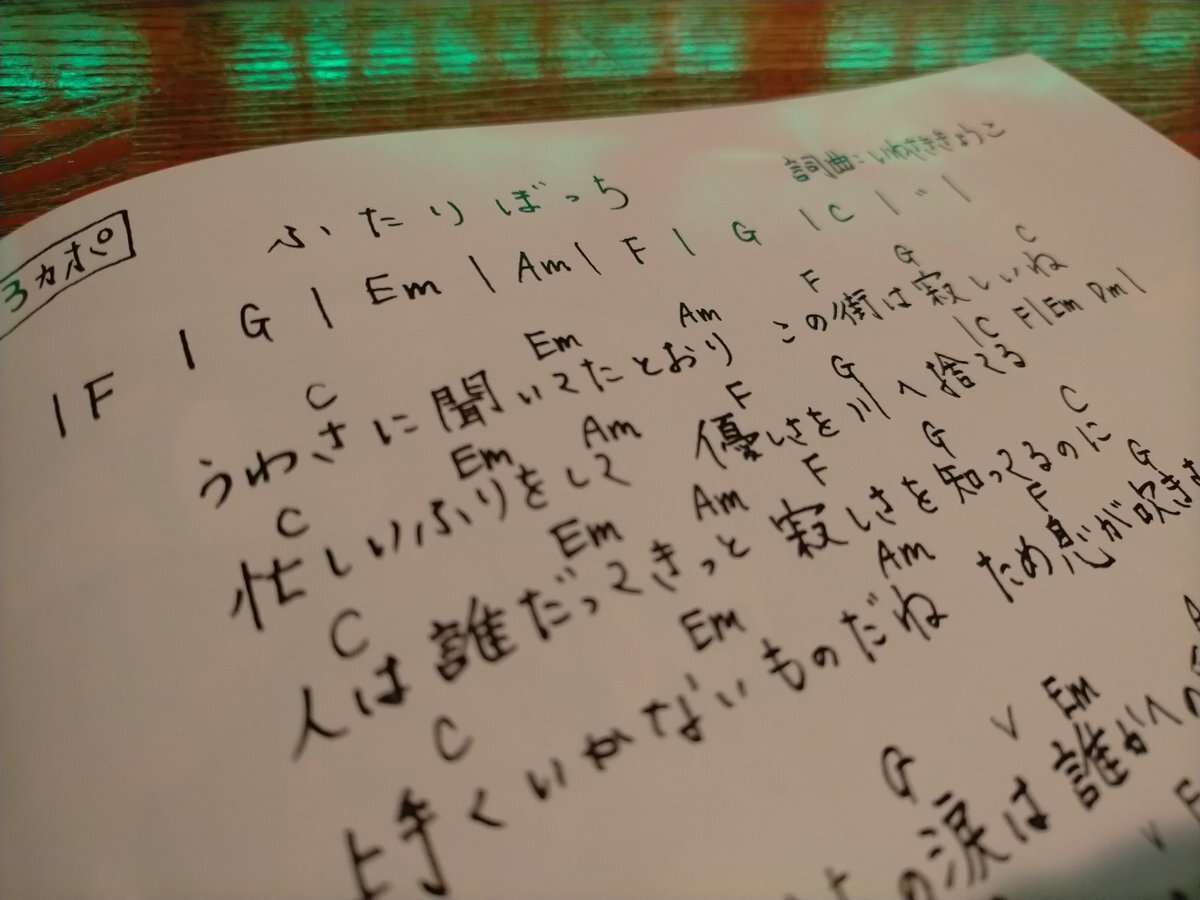 3カポ
ふたりぼっち
詞曲:いわさききょうこ
| F | G | Em | Am | F | G | C | 〃 |
C Em Am F G C
うわさに聞いてたとおり この街は寂しいね
C Em Am F G |C F|Em Dm|
忙しいふりをして 優しさを川へ捨てる
C Em Am F G C
人は誰だってきっと 寂しさを知ってるのに
C Em Am F G
上手くいかないものだね ため息が吹きさ
G V Em
の涙は誰かへの